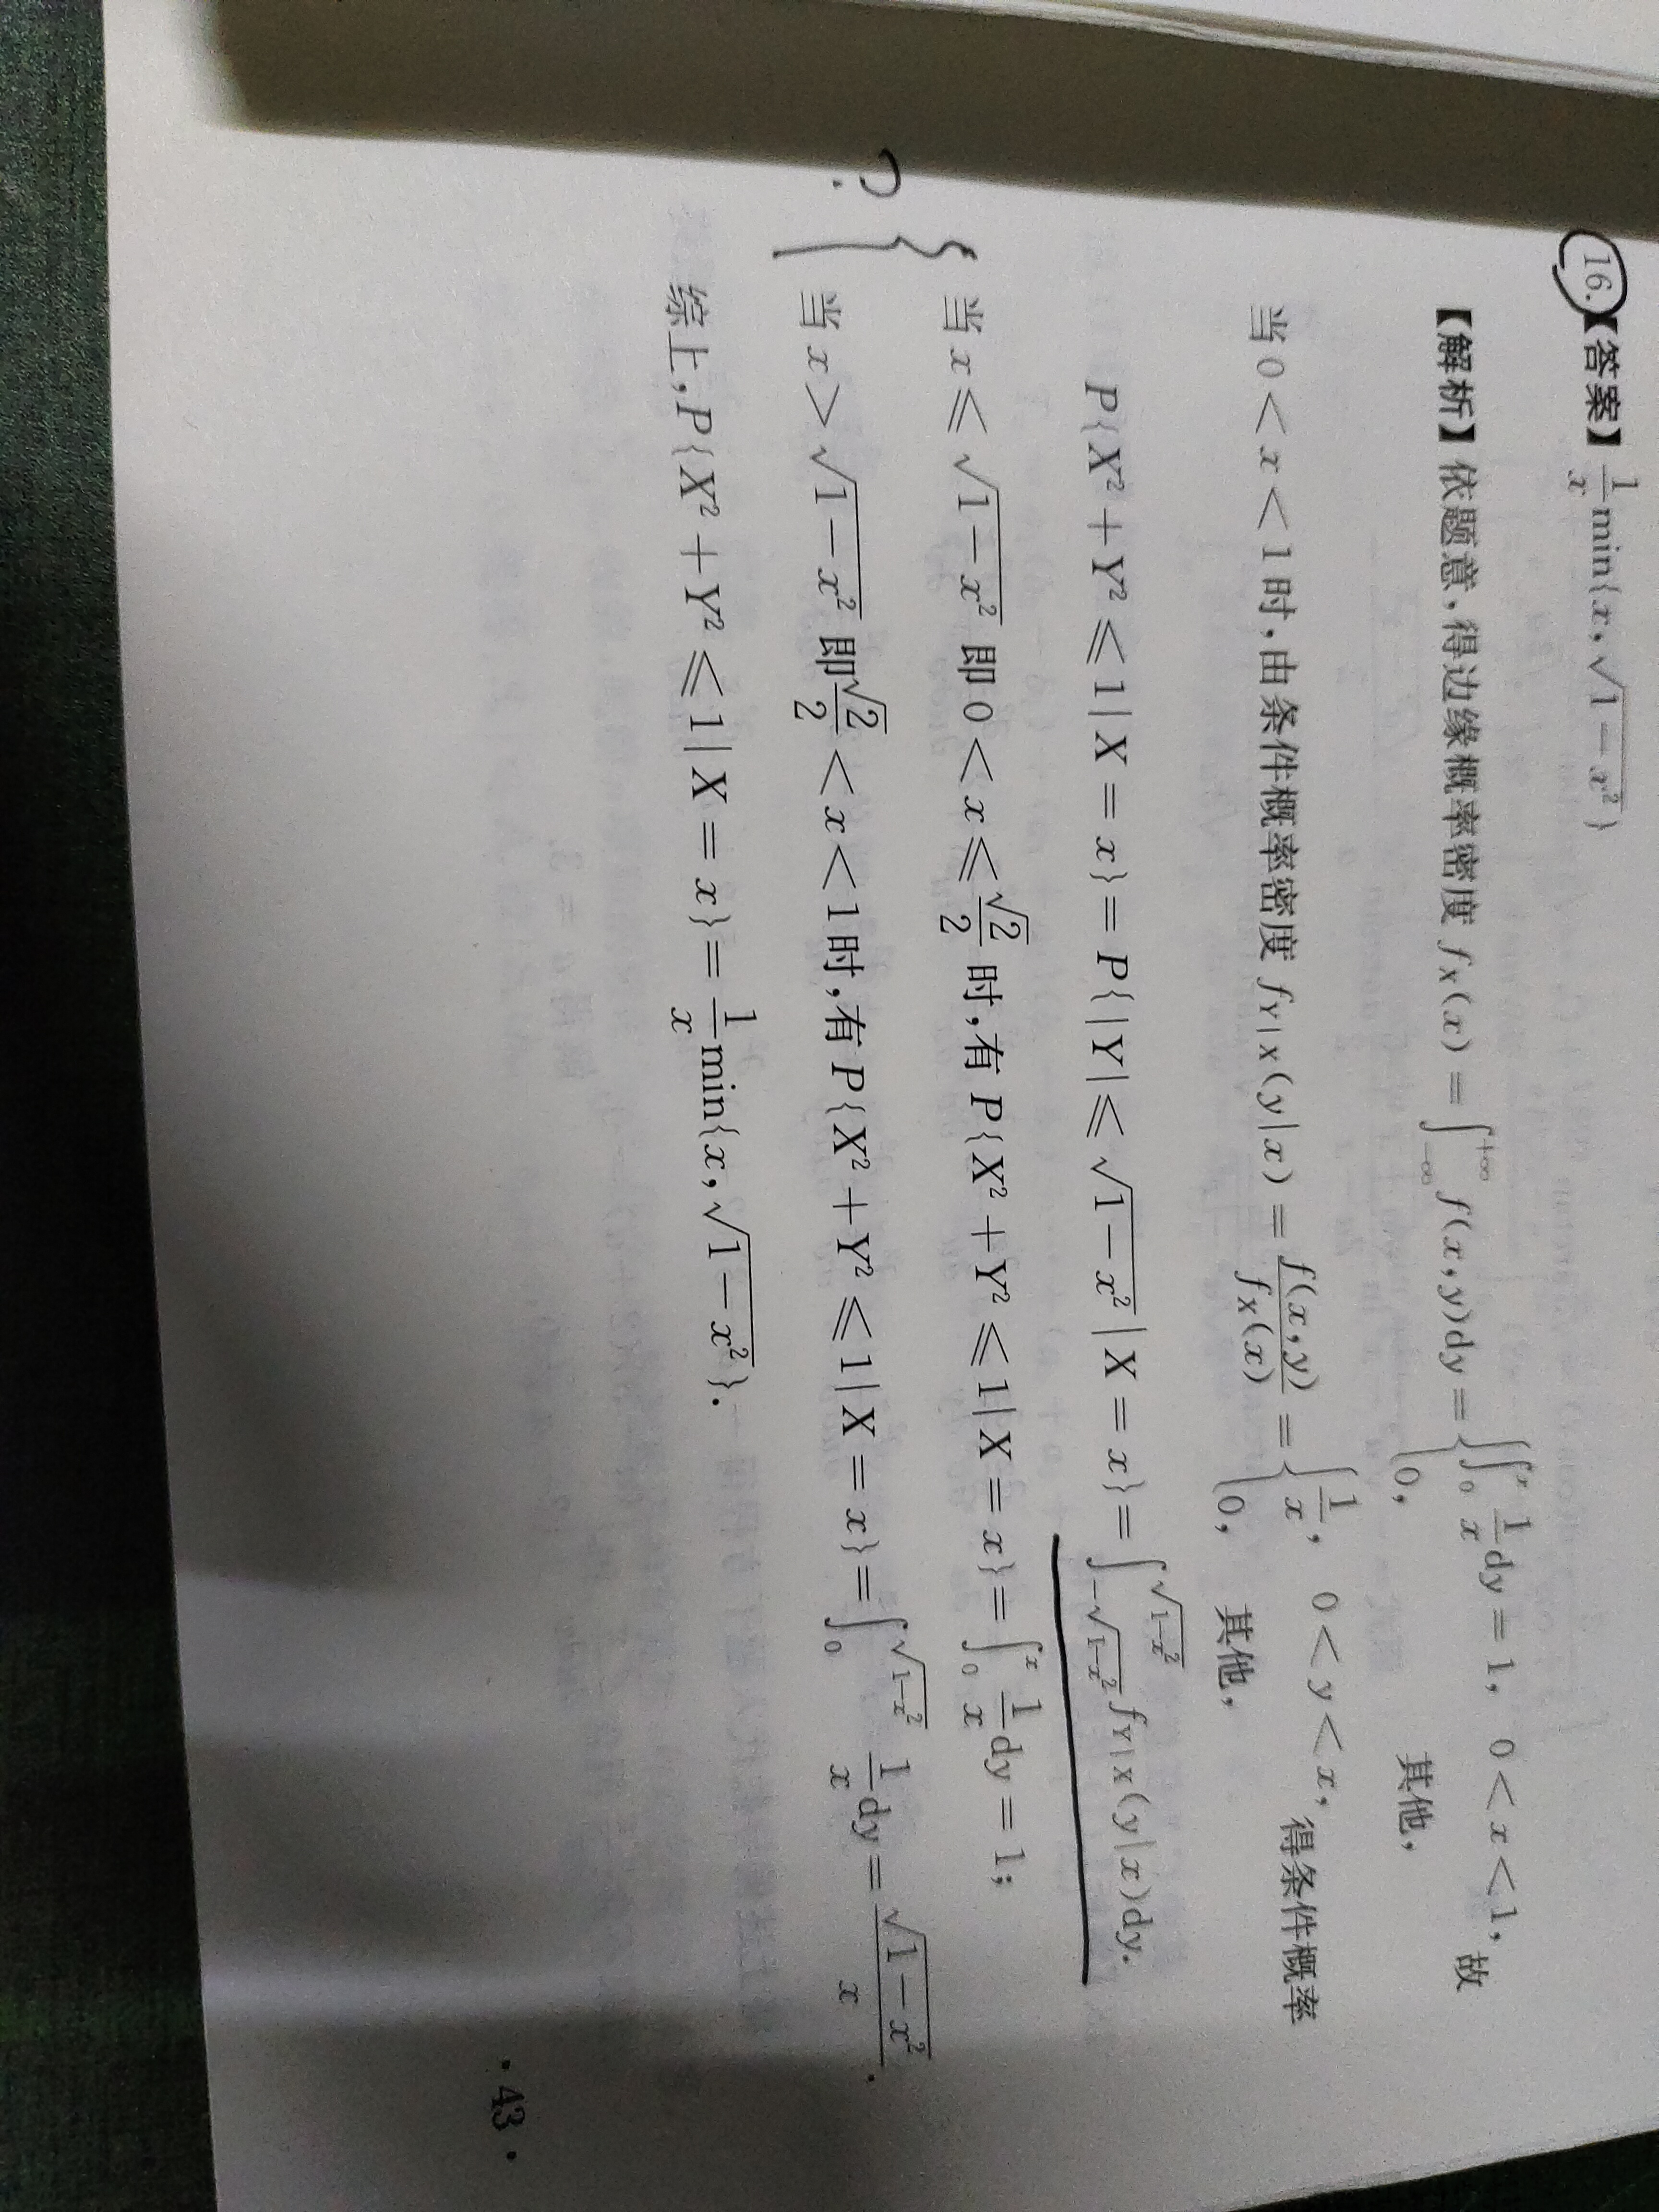 16.【答案】$\frac{1}{x}\min\{x,\sqrt{1-x^2}\}$
【解析】依题意,得边缘概率密度 $f_X(x)=\int_{-\infty}^{+\infty}f(x,y)dy=\begin{cases}\int_0^x\frac{1}{x}dy=1, & 0<x<1,\\0, & 其他,\end{cases}$ 故
当 $0<x<1$ 时,由条件概率密度 $f_{Y|X}(y|x)=\frac{f(x,y)}{f_X(x)}=\begin{cases}\frac{1}{x}, & 0<y<x,\\0, & 其他,\end{cases}$ 得条件概率
$P\{X^2+Y^2\leqslant 1|X=x\}=P\{|Y|\leqslant\sqrt{1-x^2}|X=x\}=\int_{-\sqrt{1-x^2}}^{\sqrt{1-x^2}}f_{Y|X}(y|x)dy.$
当 $x\leqslant\sqrt{1-x^2}$ 即 $0<x\leqslant\frac{\sqrt{2}}{2}$ 时,有 $P\{X^2+Y^2\leqslant 1|X=x\}=\int_0^x\frac{1}{x}dy=1;$
?
当 $x>\sqrt{1-x^2}$ 即 $\frac{\sqrt{2}}{2}<x<1$ 时,有 $P\{X^2+Y^2\leqslant 1|X=x\}=\int_0^{\sqrt{1-x^2}}\frac{1}{x}dy=\frac{\sqrt{1-x^2}}{x}.$
综上,$P\{X^2+Y^2\leqslant 1|X=x\}=\frac{1}{x}\min\{x,\sqrt{1-x^2}\}.$
· 43 ·